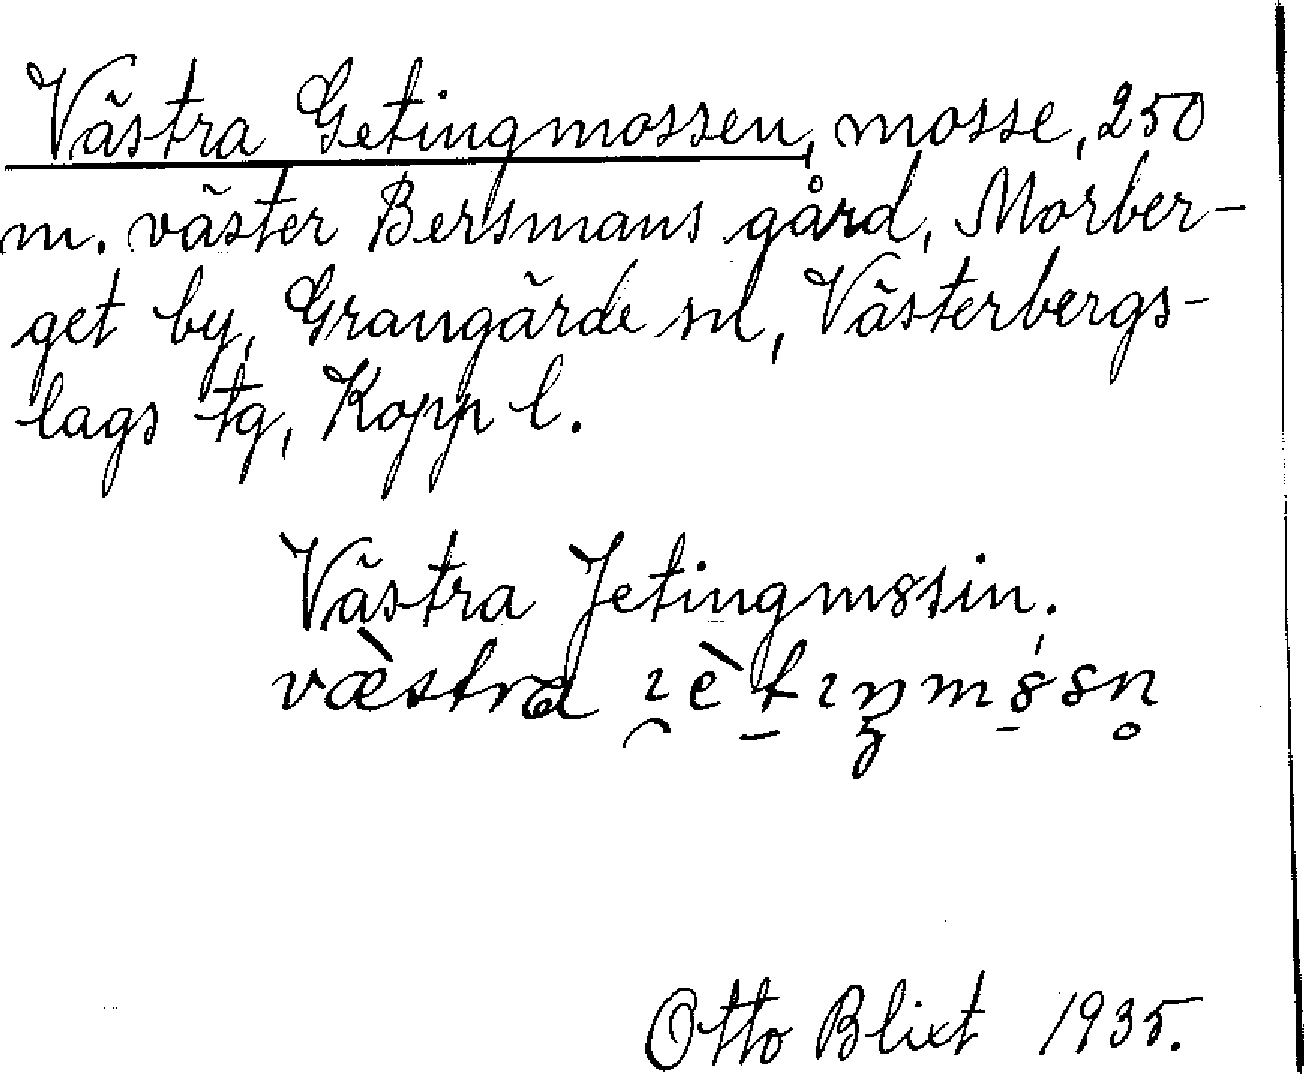 Västra Getingmossen, mosse, 250
m. väster Bersmans gård, Morber-
get by, Grangärde sn, Västerbergs-
lags tg, Kopp l.
Västra Jetingmssin.
væ̀stra
Otto Blixt 1935.